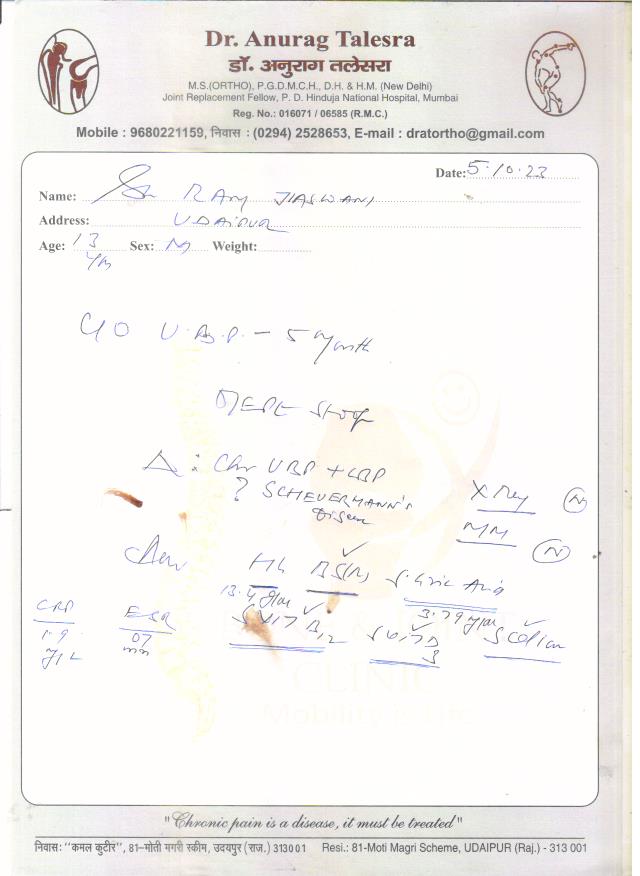 Dr. Anurag Talesra
डॉ. अनुराग तलेसरा
M.S.(ORTHO), P.G.D.M.C.H., D.H. & H.M. (New Delhi)
Joint Replacement Fellow, P. D. Hinduja National Hospital, Mumbai
Reg. No.: 016071 / 06585 (R.M.C.)
Mobile : 9680221159, निवास : (0294) 2528653, E-mail : dratortho@gmail.com
Date: 5.10.23
Name: RAM
Address: UDAIPUR
Age: 13 Sex: M Weight:
C/O U.B.P. - 5 month
Stoop
Δ: Chr UBP + LBP
? SCHEUERMANN'S X Ray (N)
Disease
MM (N)
Adv Hb BS(R) S. Uric Acid
13.4 3.79
CRP ESR S Vit B12 S Vit D3
1.9 07
mm
CLINIC
Mobility is Life
"Chronic pain is a disease, it must be treated"
निवास: "कमल कुटीर", 81-मोती मगरी स्कीम, उदयपुर (राज.) 313001 Resi.: 81-Moti Magri Scheme, UDAIPUR (Raj.) - 313 001